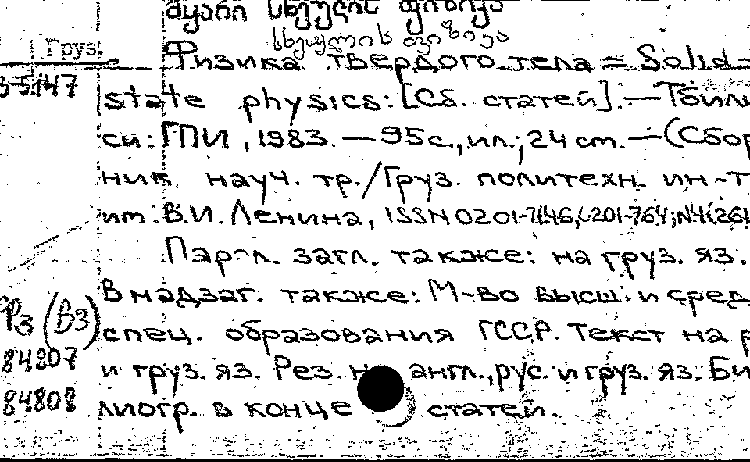 მყარი სხეულის ფიზიკა
სხეულის ფიზიკა
Груз.
Физика твердого тела = Solid-
35147
state physics: [Сб. статей]. — Тбили-
си: ГПИ, 1983. — 95с., ил.; 24 cm. — (Сбор
ник науч. тр./Груз. политехн. ин-т
им. В.И. Ленина, ISSN 0201-7146,
Парал. загл. также: на груз. яз.
В надзаг. также: М-во высш. и сред
(В3)
спец. образования ГССР. Текст на р
84807
и груз. яз. Рез. на англ., рус. и груз. яз. Би
84808
лиогр. в конце статей.